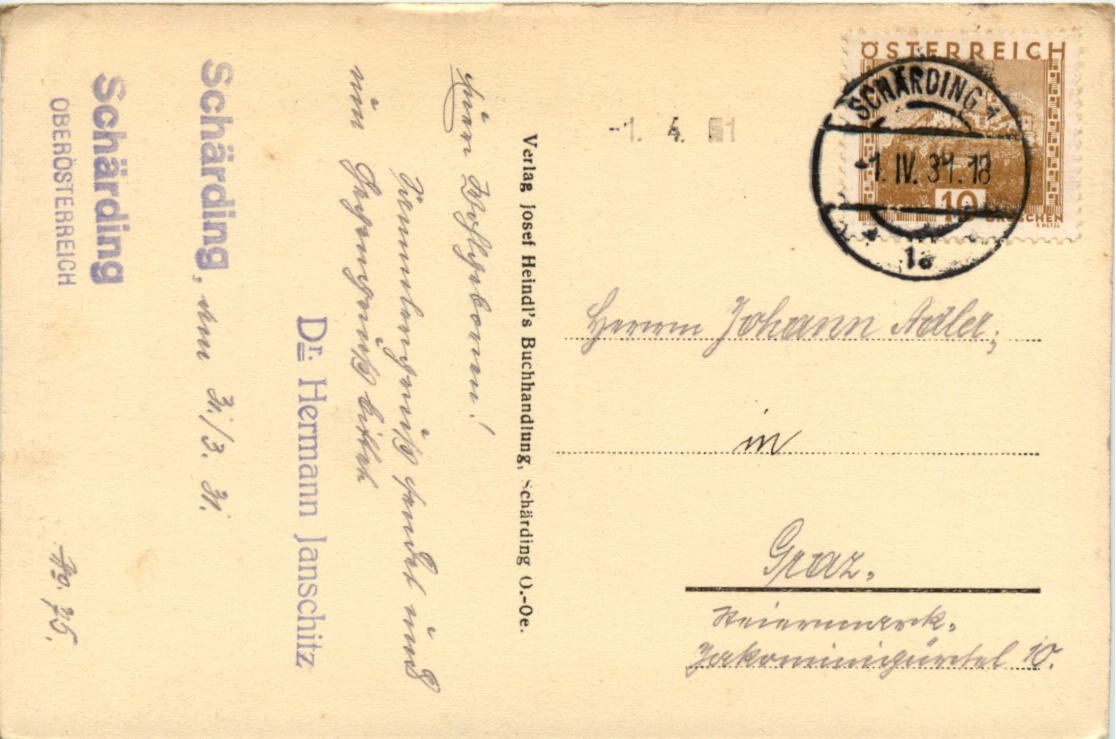 Euer Wohlgeboren!
Sammlergruß sendet und
um Gegengruß bittet
Dr. Hermann Janschitz
Schärding, am 31./3. 31.
Schärding
OBERÖSTERREICH
No. 75.
Verlag Josef Heindl's Buchhandlung, Schärding O.-Oe.
-1. 4. 31
ÖSTERREICH
10
GROSCHEN
SCHÄRDING 1
-1. IV. 31. 18
* 1a
Herrn Johann Adler,
in
Graz.
Steiermark.
Jakominigürtel 10.